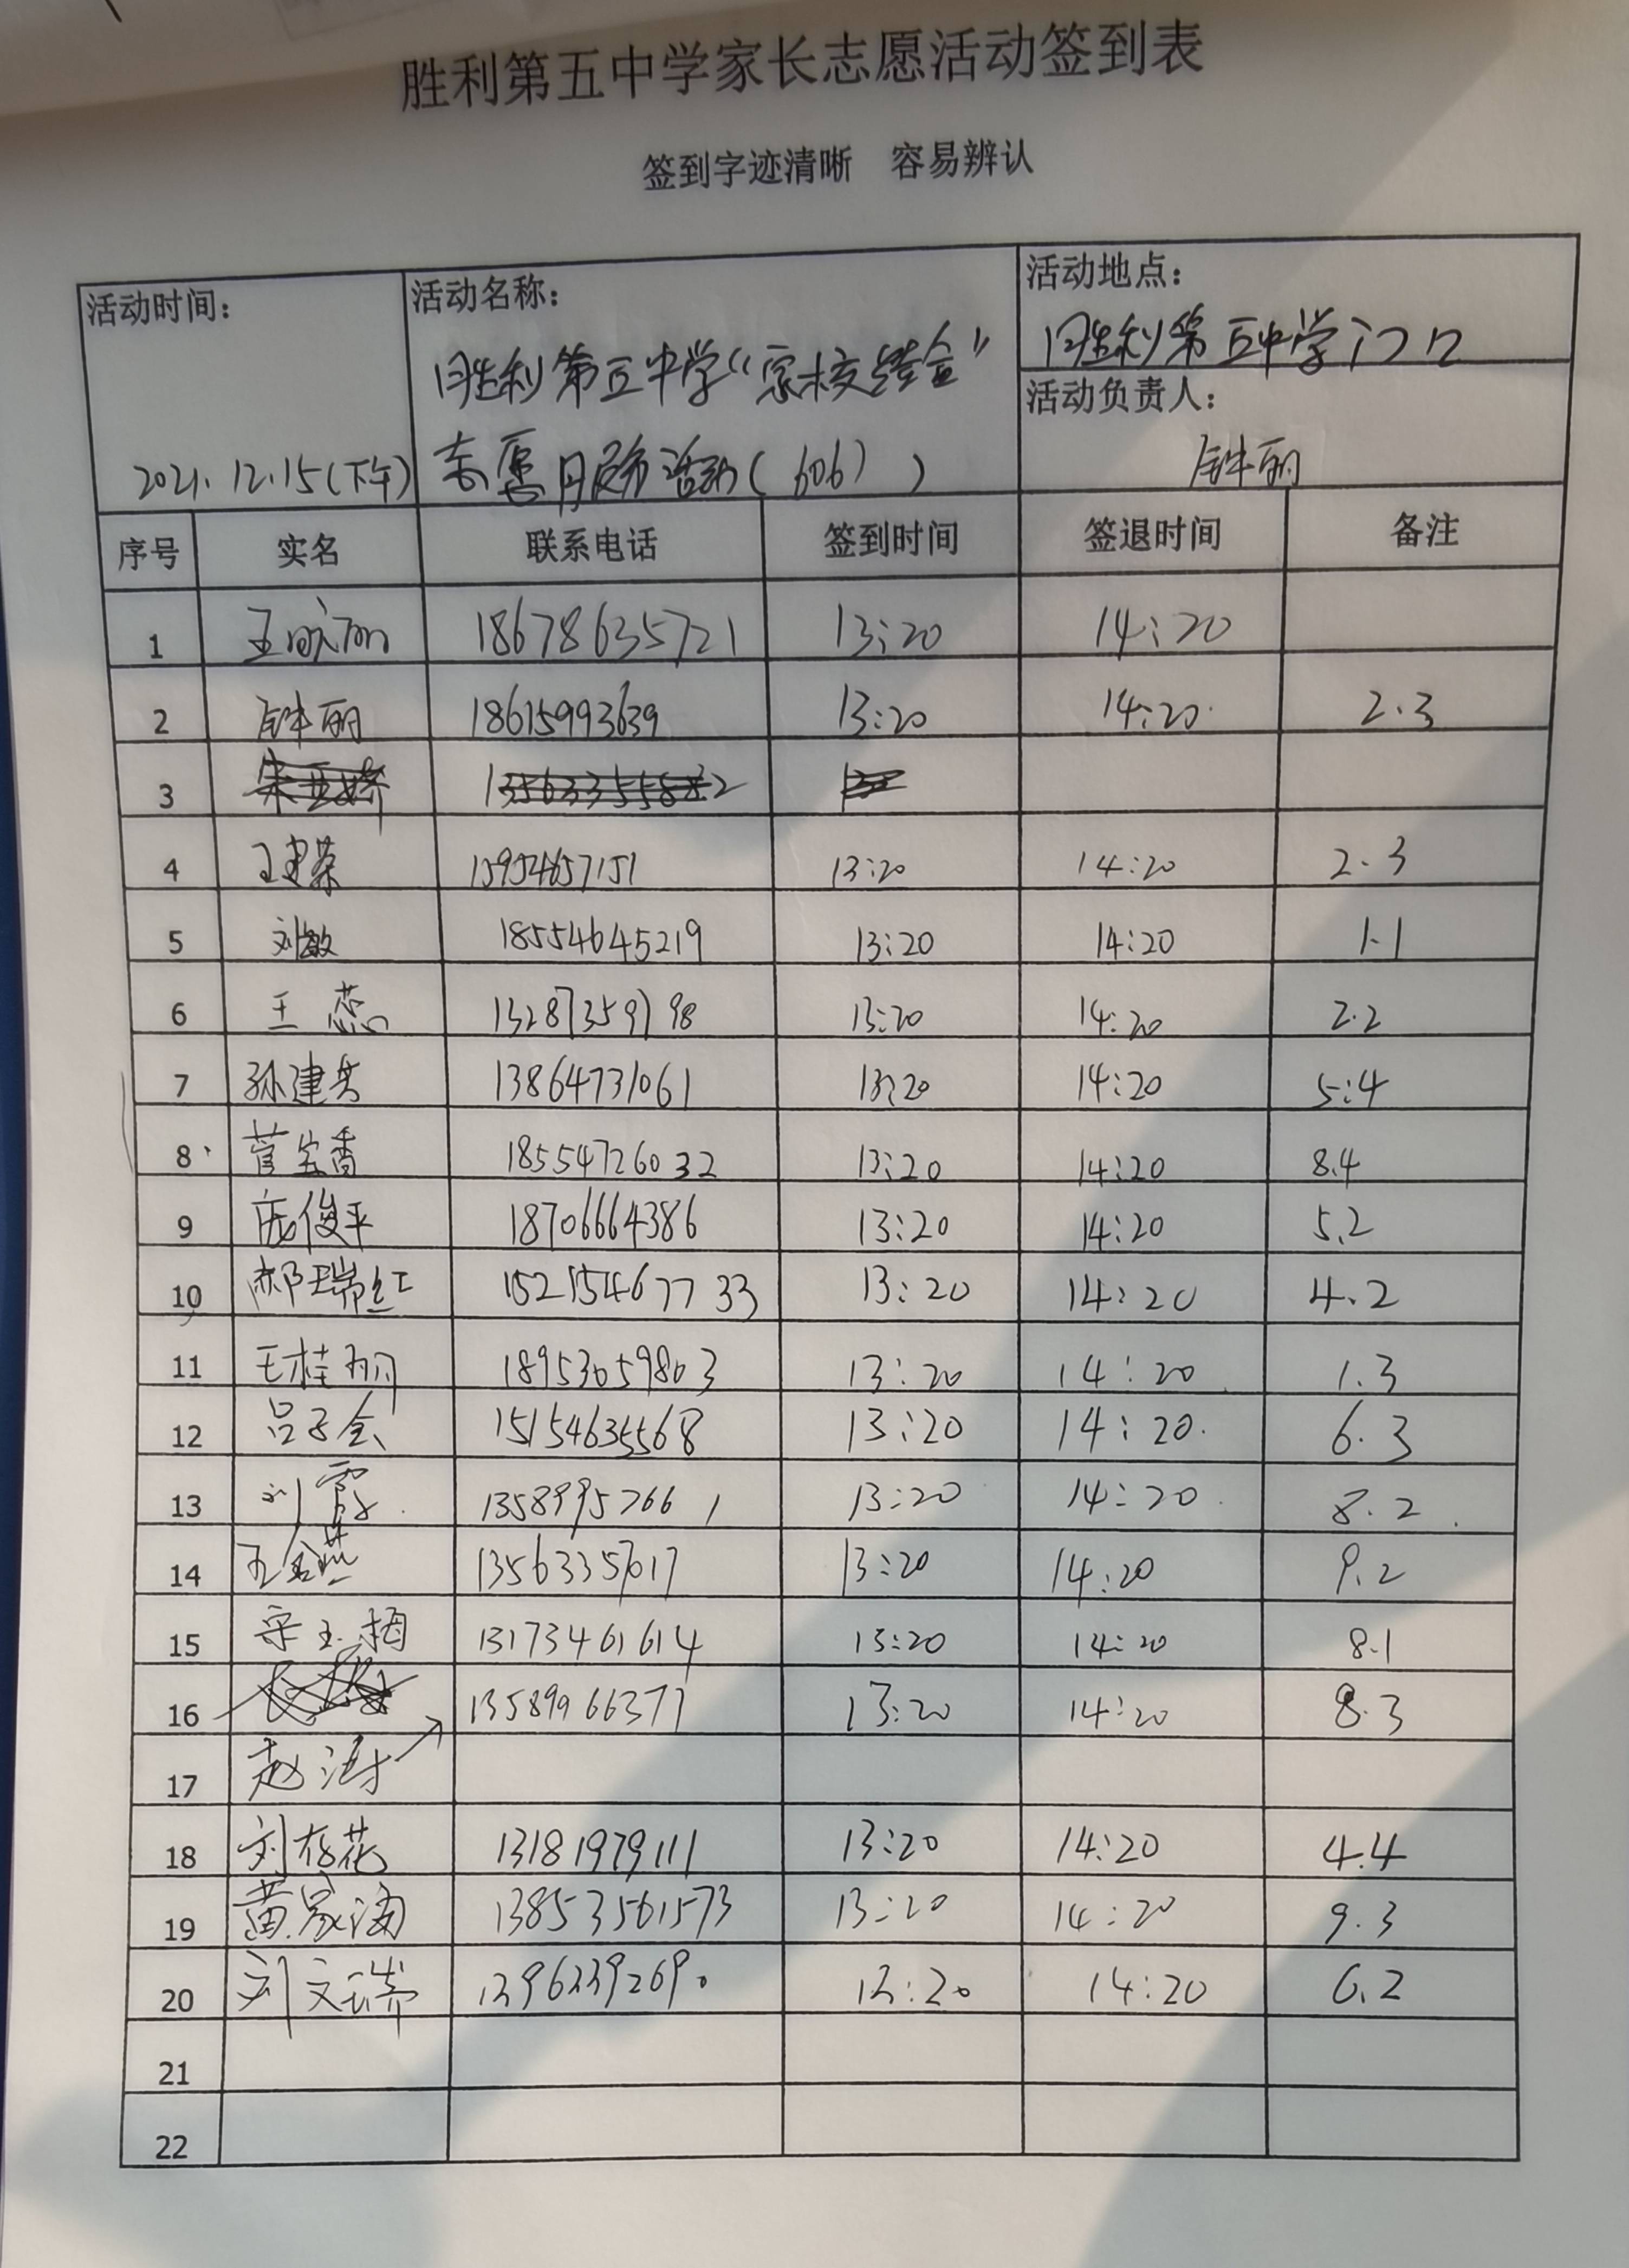 胜利第五中学家长志愿活动签到表
签到字迹清晰 容易辨认
活动时间：
2021.12.15(下午)
活动名称：
胜利第五中学“家校结合”
志愿服务活动(606)
活动地点：
胜利第五中学门口
活动负责人：
钟丽
序号 实名 联系电话 签到时间 签退时间 备注
1 王 18678635721 13:20 14:20
2 钟丽 18615993639 13:20 14:20 2.3
3
4 王建荣 15954657151 13:20 14:20 2.3
5 刘敏 18554645219 13:20 14:20 1.1
6 王蕊 13287359798 13:20 14:20 2.2
7 孙建芳 13864731061 13:20 14:20 5:4
8 菅宝香 18554726032 13:20 14:20 8.4
9 庞俊平 18706664386 13:20 14:20 5.2
10 郝瑞红 15215467733 13:20 14:20 4.2
11 王桂丽 18953059803 13:20 14:20 1.3
12 吕子会 15154635568 13:20 14:20 6.3
13 刘霞 13589957661 13:20 14:20 8.2
14 王金燕 13563357617 13:20 14:20 9.2
15 宋玉梅 13173461614 13:20 14:20 8.1
16 13589966377 13:20 14:20 8.3
17 赵涛
18 刘存花 13181979111 13:20 14:20 4.4
19 黄家海 13853561573 13:20 14:20 9.3
20 刘文瑞 13963392690 13:20 14:20 6.2
21
22